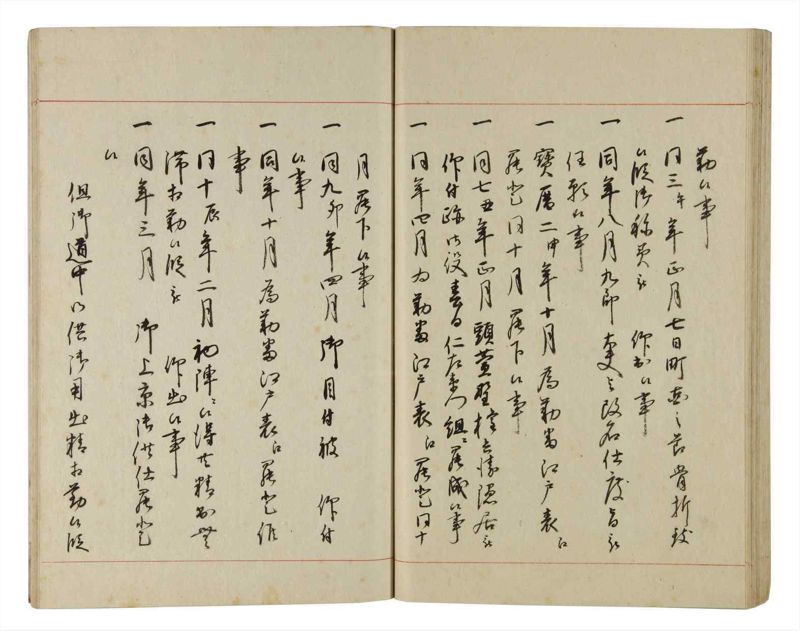 勤候事
一同三午年正月七日町出之節骨折致
候段御称美被 仰出候事
一同年八月九郎太夫与改名仕度旨被
任願候事
一寶暦二申年十月為勤番江戸表江
罷登同十月罷下候事
一同七丑年正月頭萱野権兵衛隠居被
仰付跡御役春日仁左衛門組ニ罷成候事
一同年四月為勤番江戸表江罷登同十
月罷下候事
一同九卯年四月御目付被 仰付
候事
一同年十月為勤番江戸表江罷登候
事
一同十辰年二月初陣ニ候得共精出無
滞相勤候段被 仰出候事
一同年三月 御上京御供仕罷登
候
但御道中御供御用出精相勤候段